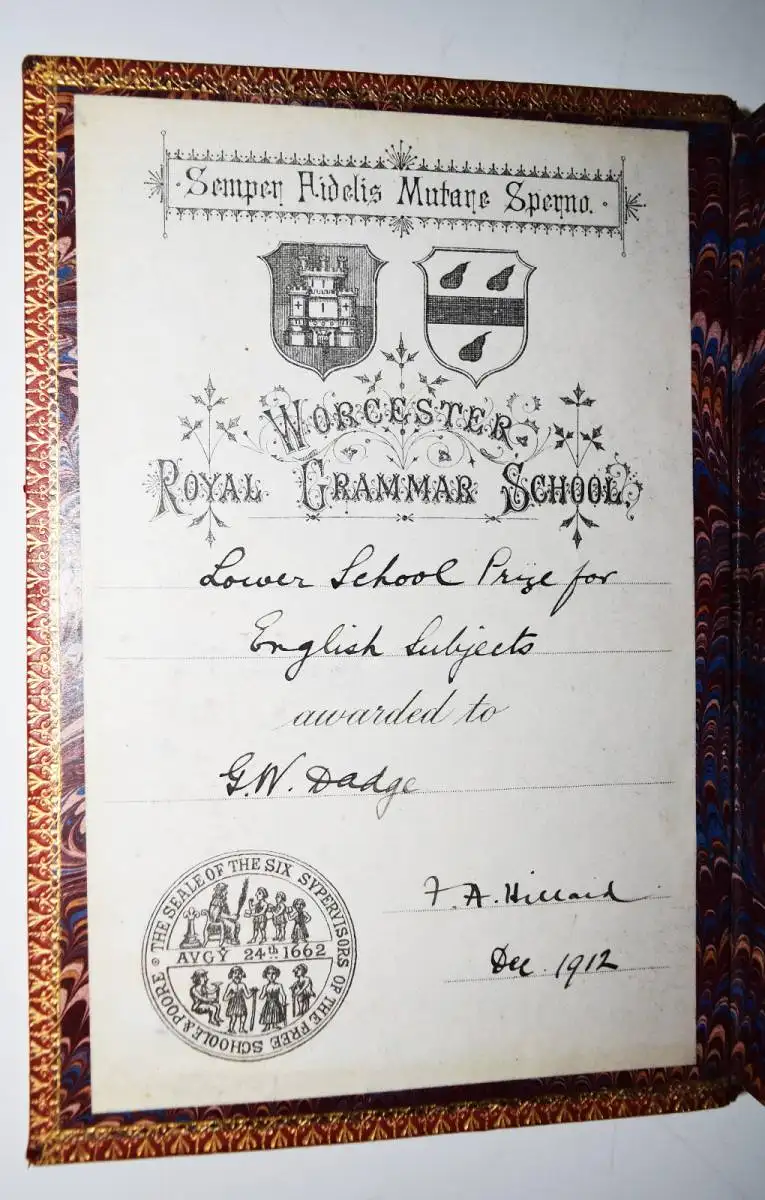 Semper Fidelis Mutare Sperno.
WORCESTER
ROYAL GRAMMAR SCHOOL.
Lower School Prize for
English Subjects
awarded to
G.W. Dadge
F. A. Hillard
Dec. 1912
THE SEALE OF THE SIX SVPERVISORS OF THE FREE SCHOOLE & POORE
AVGY 24th 1662